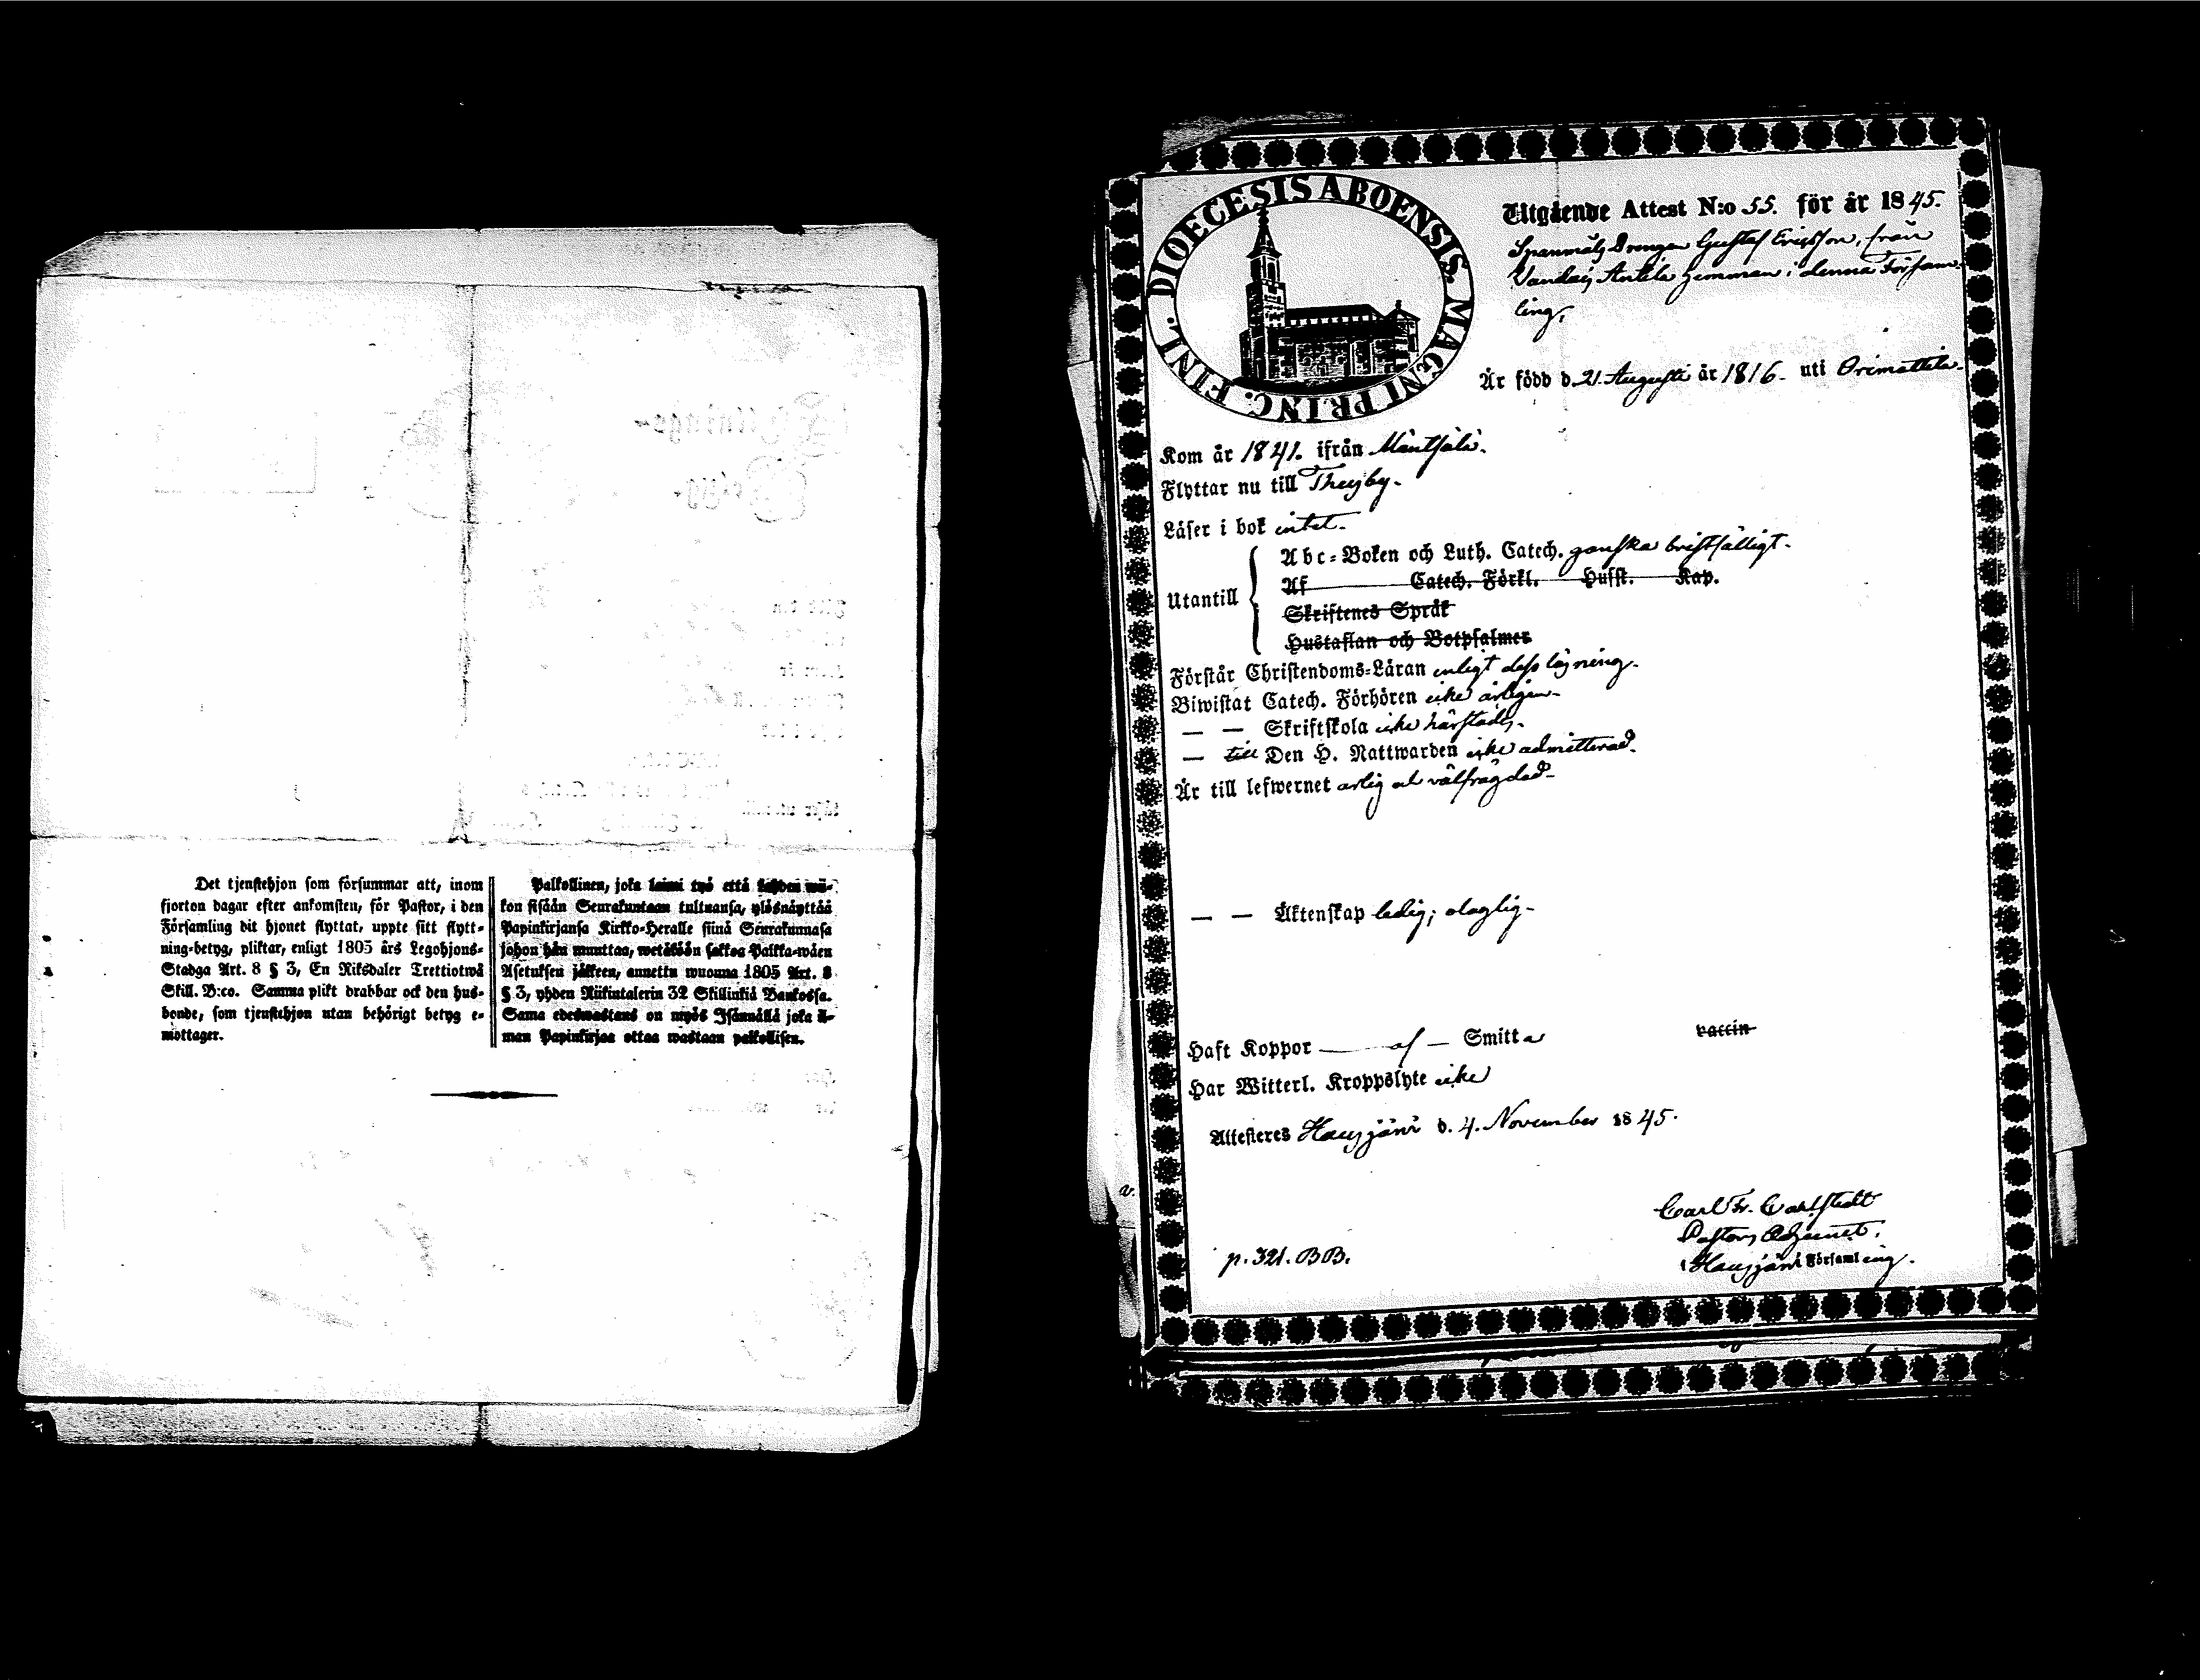 Det tjenstehjon som försummar att, inom
fjorton dagar efter ankomsten, för Pastor, i den
Församling dit hjonet flyttat, uppte sitt flytt-
ning-betyg, pliktar, enligt 1805 års Legohjons-
Stadga Art. 8 § 3, En Riksdaler Trettiotwå
Skill. B:co. Samma plikt drabbar ock den hus-
bonde, som tjenstehjon utan behörigt betyg e-
mottager.
Palkollinen, joka laimi lyö että kahden wii-
kon sisään Seurakuntaan tultuansa, ylösnäyttää
Papinkirjansa Kirkko-Heralle siinä Seurakunnasa
johon hän muuttaa, wetäköön sakkoa Palkka-wäen
Asetuksen jälkeen, annettu wuonna 1805 Art. 8
§ 3, yhden Riikintalerin 32 Skillinkiä Bankossa.
Sama edeswastaus on myös Isännällä joka il-
man Papinkirjaa ottaa wastaan palkollisen.
DIOECESIS ABOENSIS. MAGNI PRINC. FINL.
Utgående Attest N:o 55. för år 1845.
Spanmåls Drengen Gustaf Ericsson, från
Anttila hemman i denna Försam-
ling,
Är född d. 21. Augusti år 1816. uti Orimattila.
Kom år 1841. ifrån Mäntsälä.
Flyttar nu till Thusby.
Läser i bok intet.
Abc-Boken och Luth. Catech. ganska bristfälligt.
Utantill
Af Catech. Förkl. Husft. Kap.
Skriftenes Språk
Hustaflan och Botpsalmer
Förstår Christendoms-Läran enligt dess läsning.
Biwistat Catech. Förhören icke årligen.
— — Skriftskola icke härstädes.
— till Den H. Nattwarden icke admitterad.
Är till lefwernet ärlig och välfrägdad.
— — Äktenskap ledig; olaglig.
Haft Koppor — af — Smitta vaccin
Har Witterl. Kroppslyte icke
Attesteras Hausjärvi d. 4. November 1845.
Carl Fr. Carlstedt
Pastors Adjunct.
i Hausjärvi Församling.
p. 321. BB.